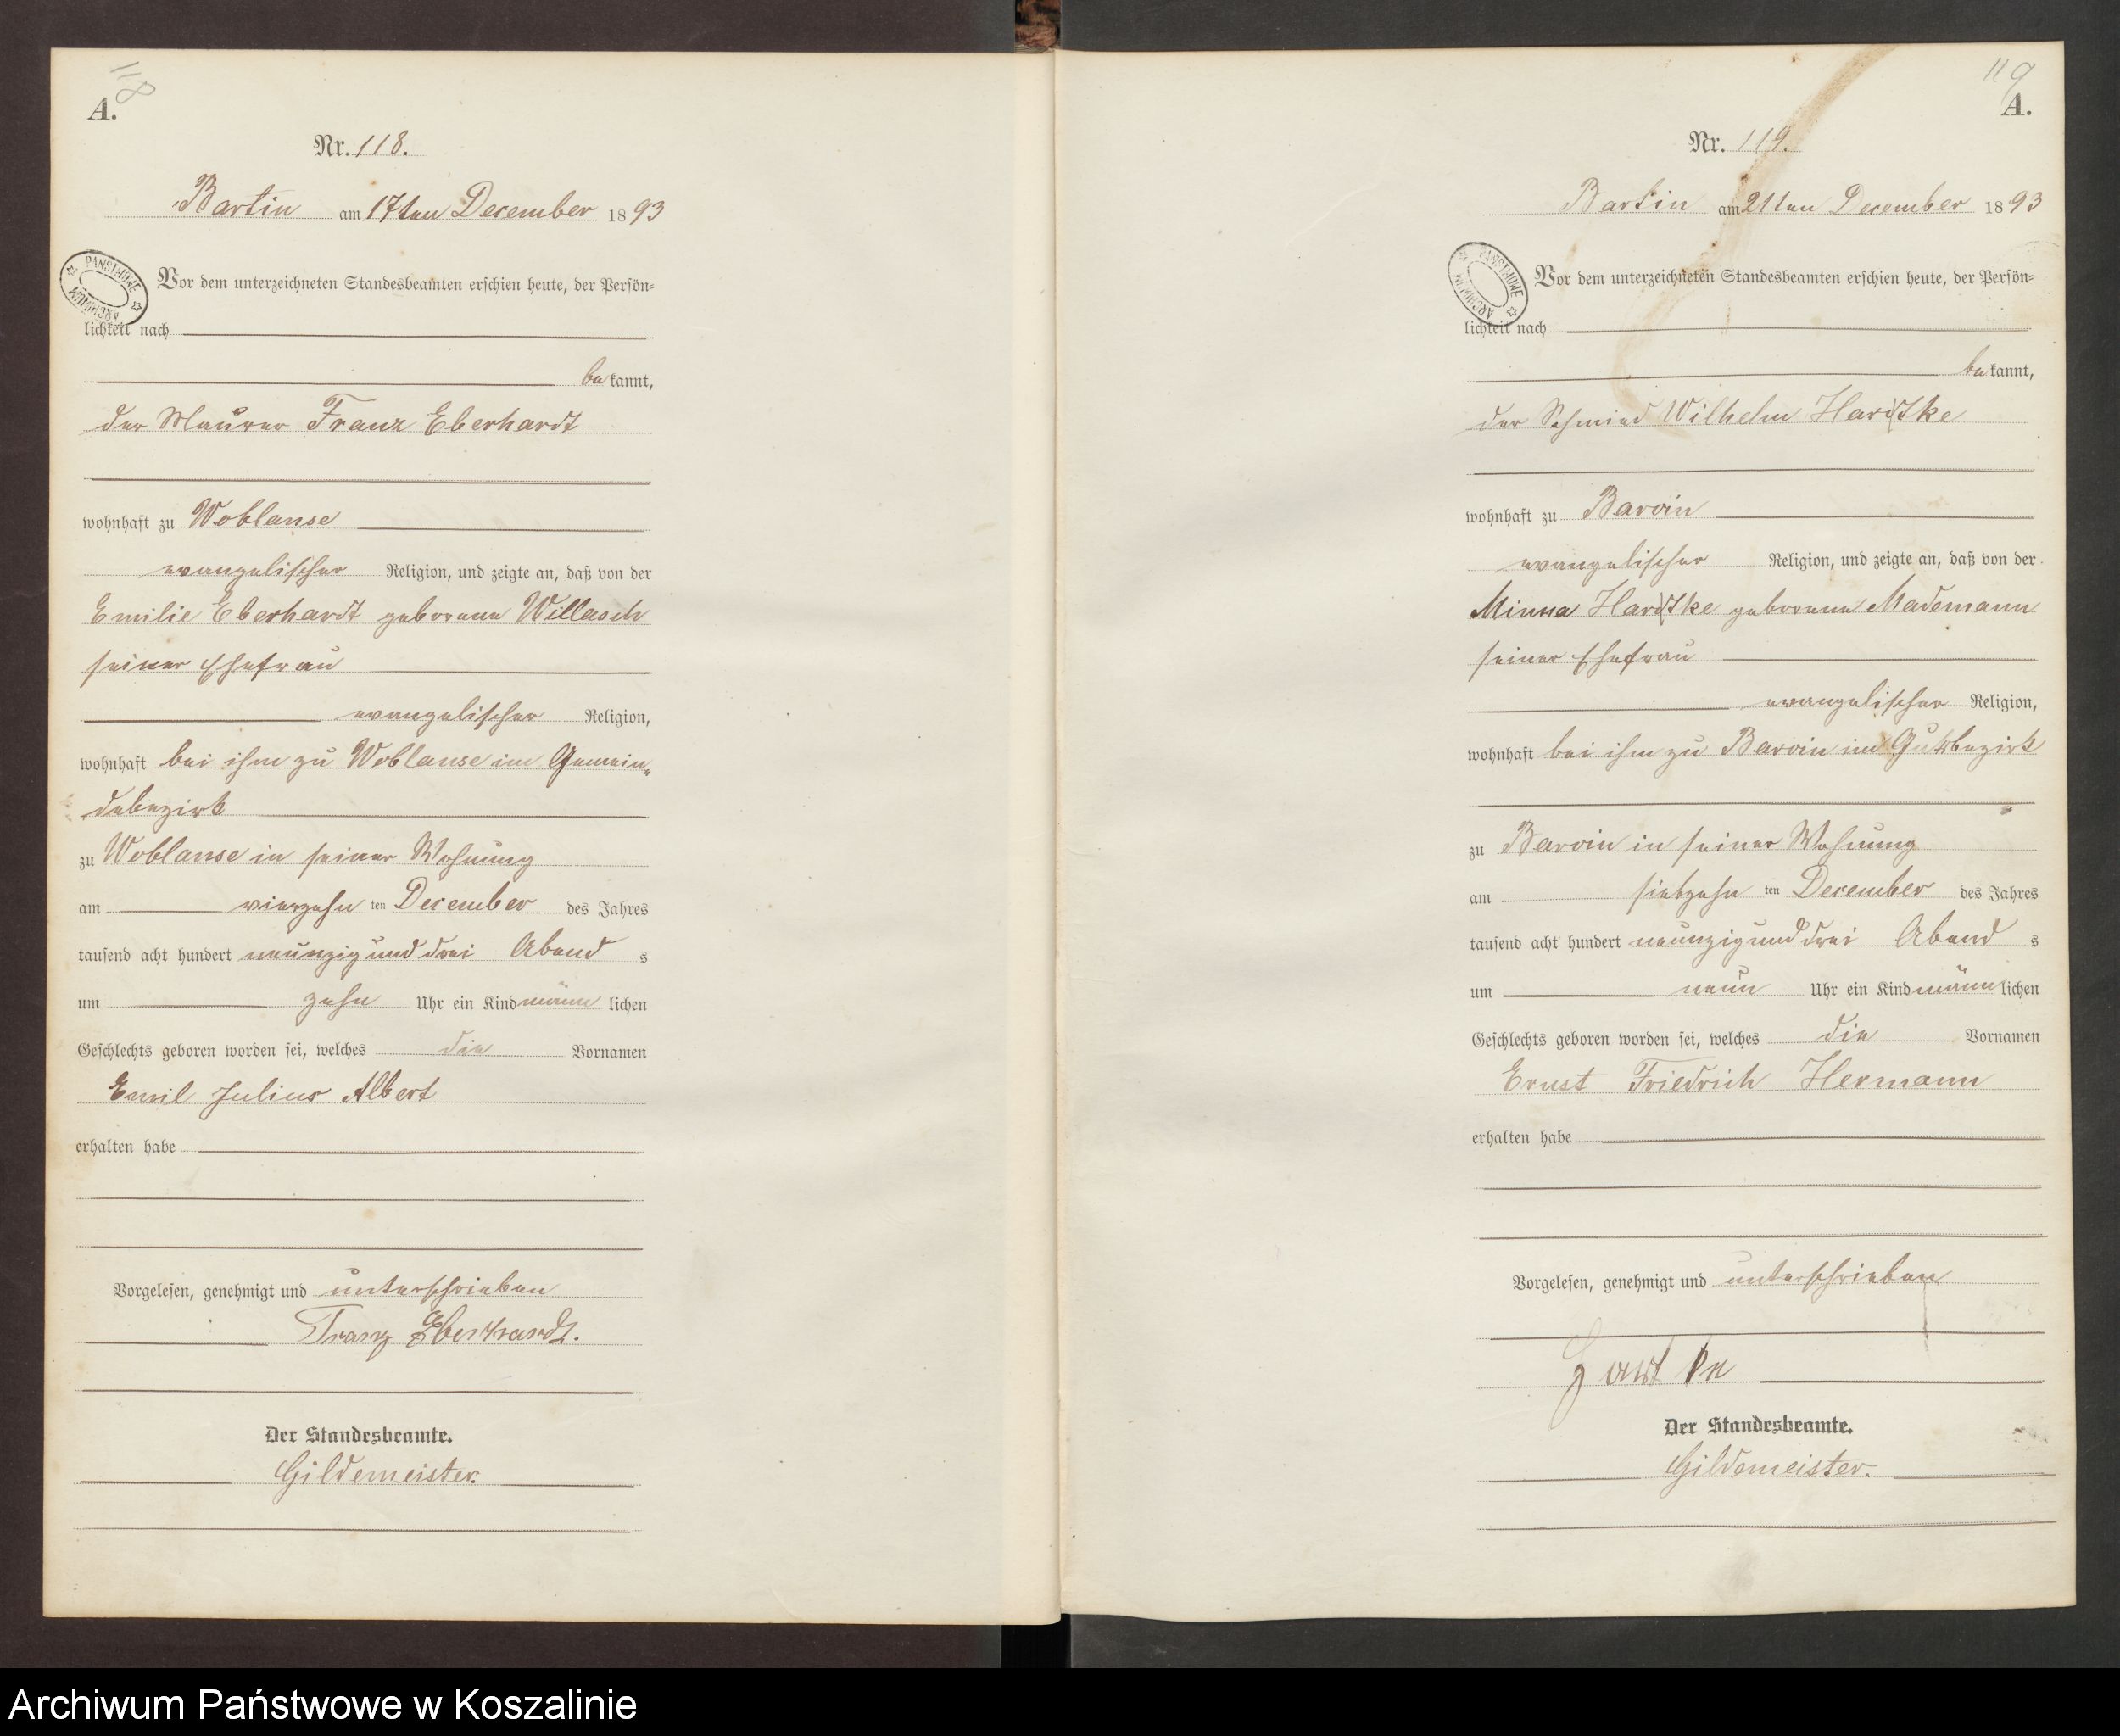 118
A.
Nr. 118.
Bartin am 17ten December 1893
PAŃSTWOWE ARCHIWUM
Vor dem unterzeichneten Standesbeamten erschien heute, der Persön-
lichkeit nach
bekannt,
der Maurer Franz Eberhardt
wohnhaft zu Woblanse
evangelischer Religion, und zeigte an, daß von der
Emilie Eberhardt geborene Willasch
seiner Ehefrau
evangelischer Religion,
wohnhaft bei ihm zu Woblanse im Gemein-
debezirk
zu Woblanse in seiner Wohnung
am vierzehn ten December des Jahres
tausend acht hundert neunzig und drei Abend s
um zehn Uhr ein Kind männlichen
Geschlechts geboren worden sei, welches die Vornamen
Emil Julius Albert
erhalten habe
Vorgelesen, genehmigt und unterschrieben
Franz Eberhardt.
Der Standesbeamte.
Gildemeister.
119
A.
Nr. 119.
Bartin am 21ten December 1893
PAŃSTWOWE ARCHIWUM
Vor dem unterzeichneten Standesbeamten erschien heute, der Persön-
lichkeit nach
bekannt,
der Schmied Wilhelm
wohnhaft zu Barvin
evangelischer Religion, und zeigte an, daß von der
Minna geborene Mademann
seiner Ehefrau
evangelischer Religion,
wohnhaft bei ihm zu Barvin im Gutsbezirk
zu Barvin in seiner Wohnung
am siebzehn ten December des Jahres
tausend acht hundert neunzig und drei Abend s
um neun Uhr ein Kind männlichen
Geschlechts geboren worden sei, welches die Vornamen
Ernst Friedrich Hermann
erhalten habe
Vorgelesen, genehmigt und unterschrieben
Hartke
Der Standesbeamte.
Gildemeister.
Archiwum Państwowe w Koszalinie